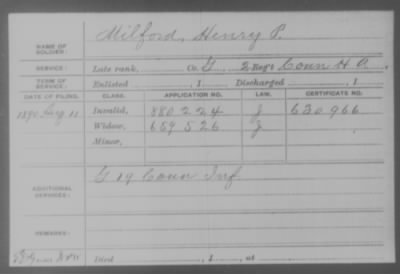 Milford, Henry P.
NAME OF SOLDIER:
SERVICE: Late rank, Co. G, 2 Reg't Conn H. A.
TERM OF SERVICE: Enlisted , 1 Discharged , 1
DATE OF FILING. CLASS. APPLICATION NO. LAW. CERTIFICATE NO.
1890 Aug 11 Invalid, 880 224 J 630 966
Widow, 659 526 J
Minor,
G 19 Conn Inf.
ADDITIONAL SERVICES:
REMARKS:
Died , 1 , at